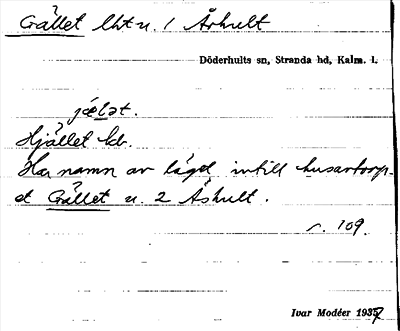 Gället lht u. 1 Århult
Döderhults sn, Stranda hd, Kalm. l.
jælət.
Hjället kb.
Har namn av läget intill husartorp-
et Gället u. 2 Århult.
s. 109.
Ivar Modéer 1937